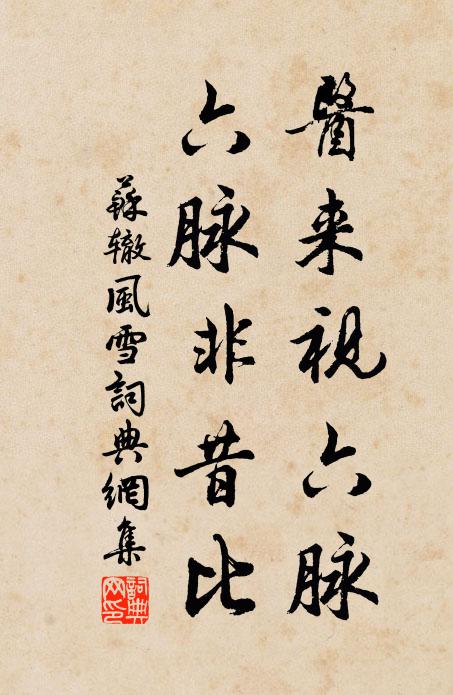 醫来視六脉
六脉非昔比
蘇辙風雪詞典網集
詞典
網印